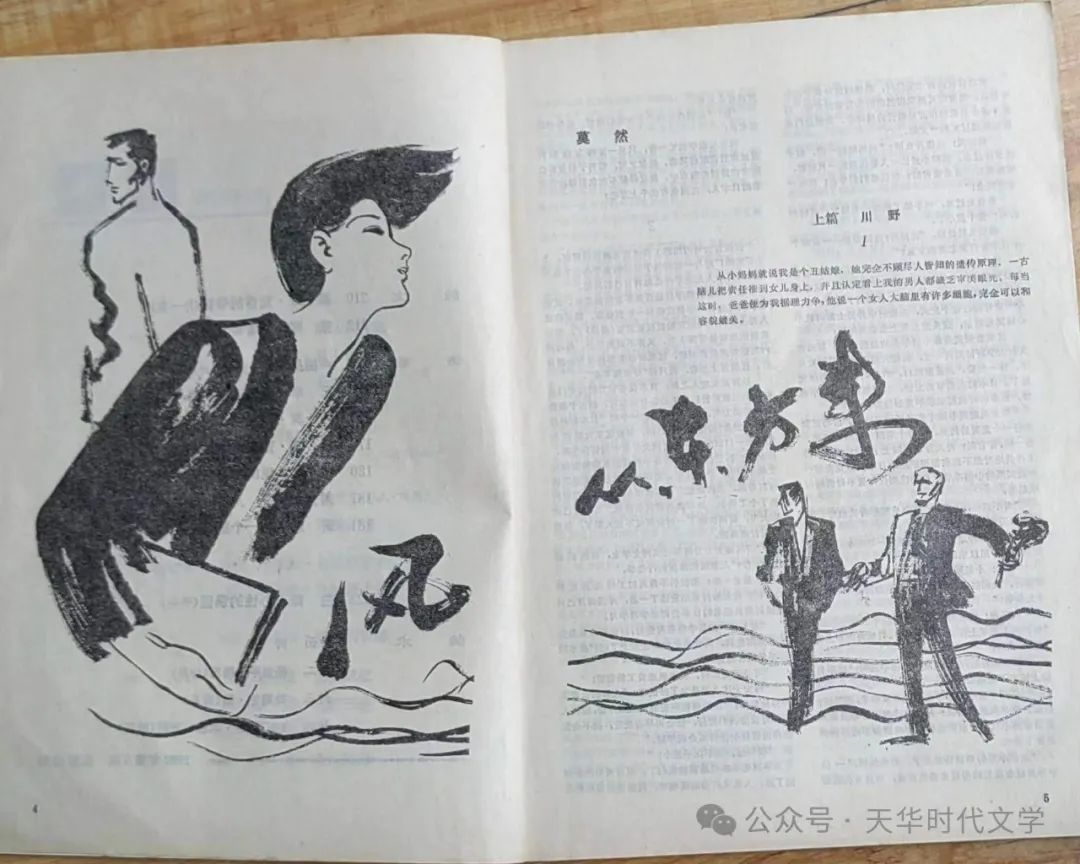 风
4
莫 然
上篇 川 野
1
从小妈妈就说我是个丑姑娘，她完全不顾尽人皆知的遗传原理，一古
脑儿把责任推到女儿身上，并且认定看上我的男人都缺乏审美眼光。每当
这时，爸爸便为我据理力争，他说一个女人大脑里有许多细胞，完全可以和
容貌媲美。
从东方来
5
公众号·天华时代文学